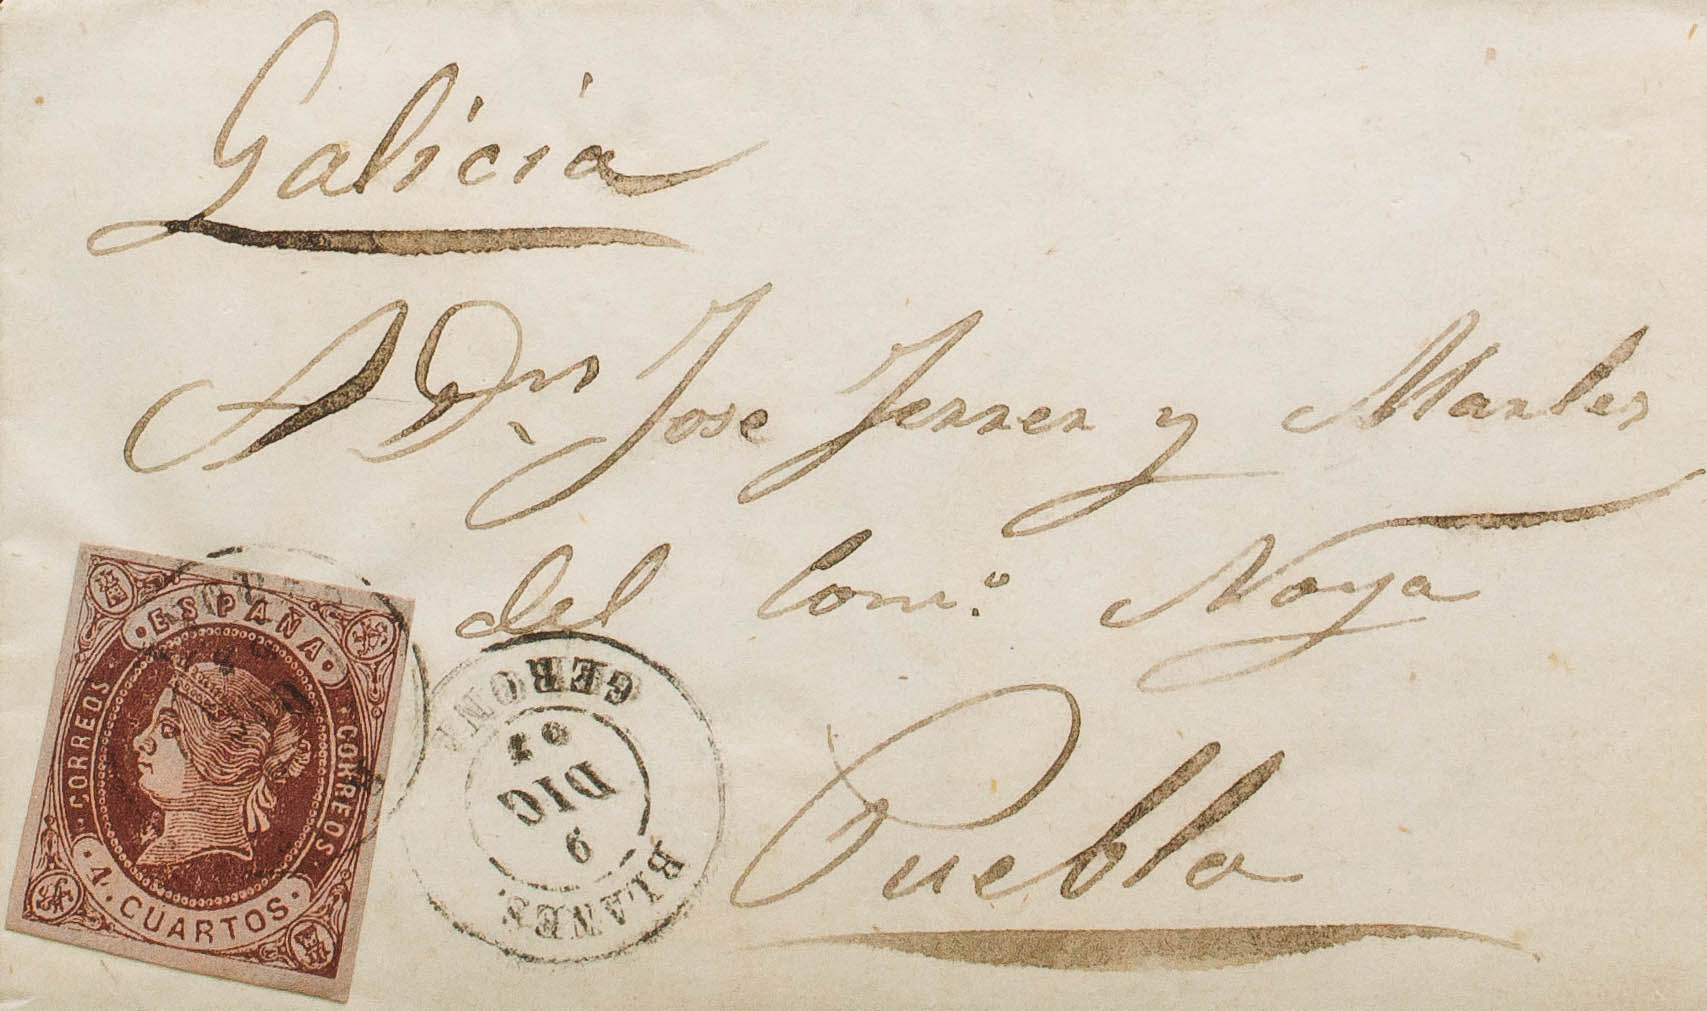 Galicia
A Dn. Jose Ferrer y Marles
del Com.o Noya
Puebla
ESPAÑA
CORREOS
CORREOS
4. CUARTOS
GERONA
DIC
BLANES